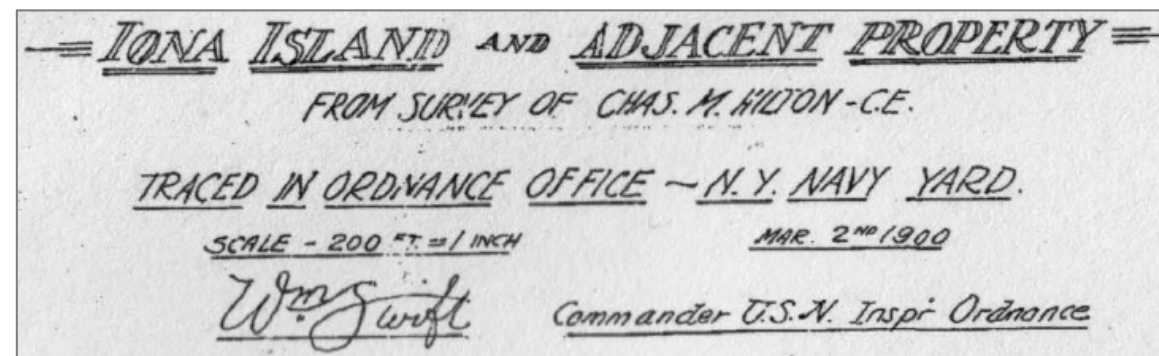 IONA ISLAND AND ADJACENT PROPERTY
FROM SURVEY OF CHAS. M. HILTON - C.E.
TRACED IN ORDNANCE OFFICE — N. Y. NAVY YARD.
SCALE - 200 FT. = 1 INCH MAR. 2ND 1900
Wm Swift Commander U.S.N. Inspr Ordnance